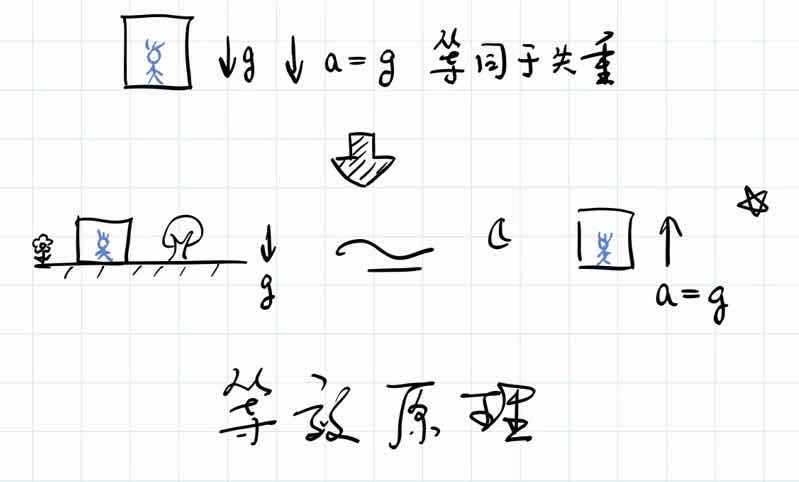 g a = g 等同于失重
g
a = g
等效原理